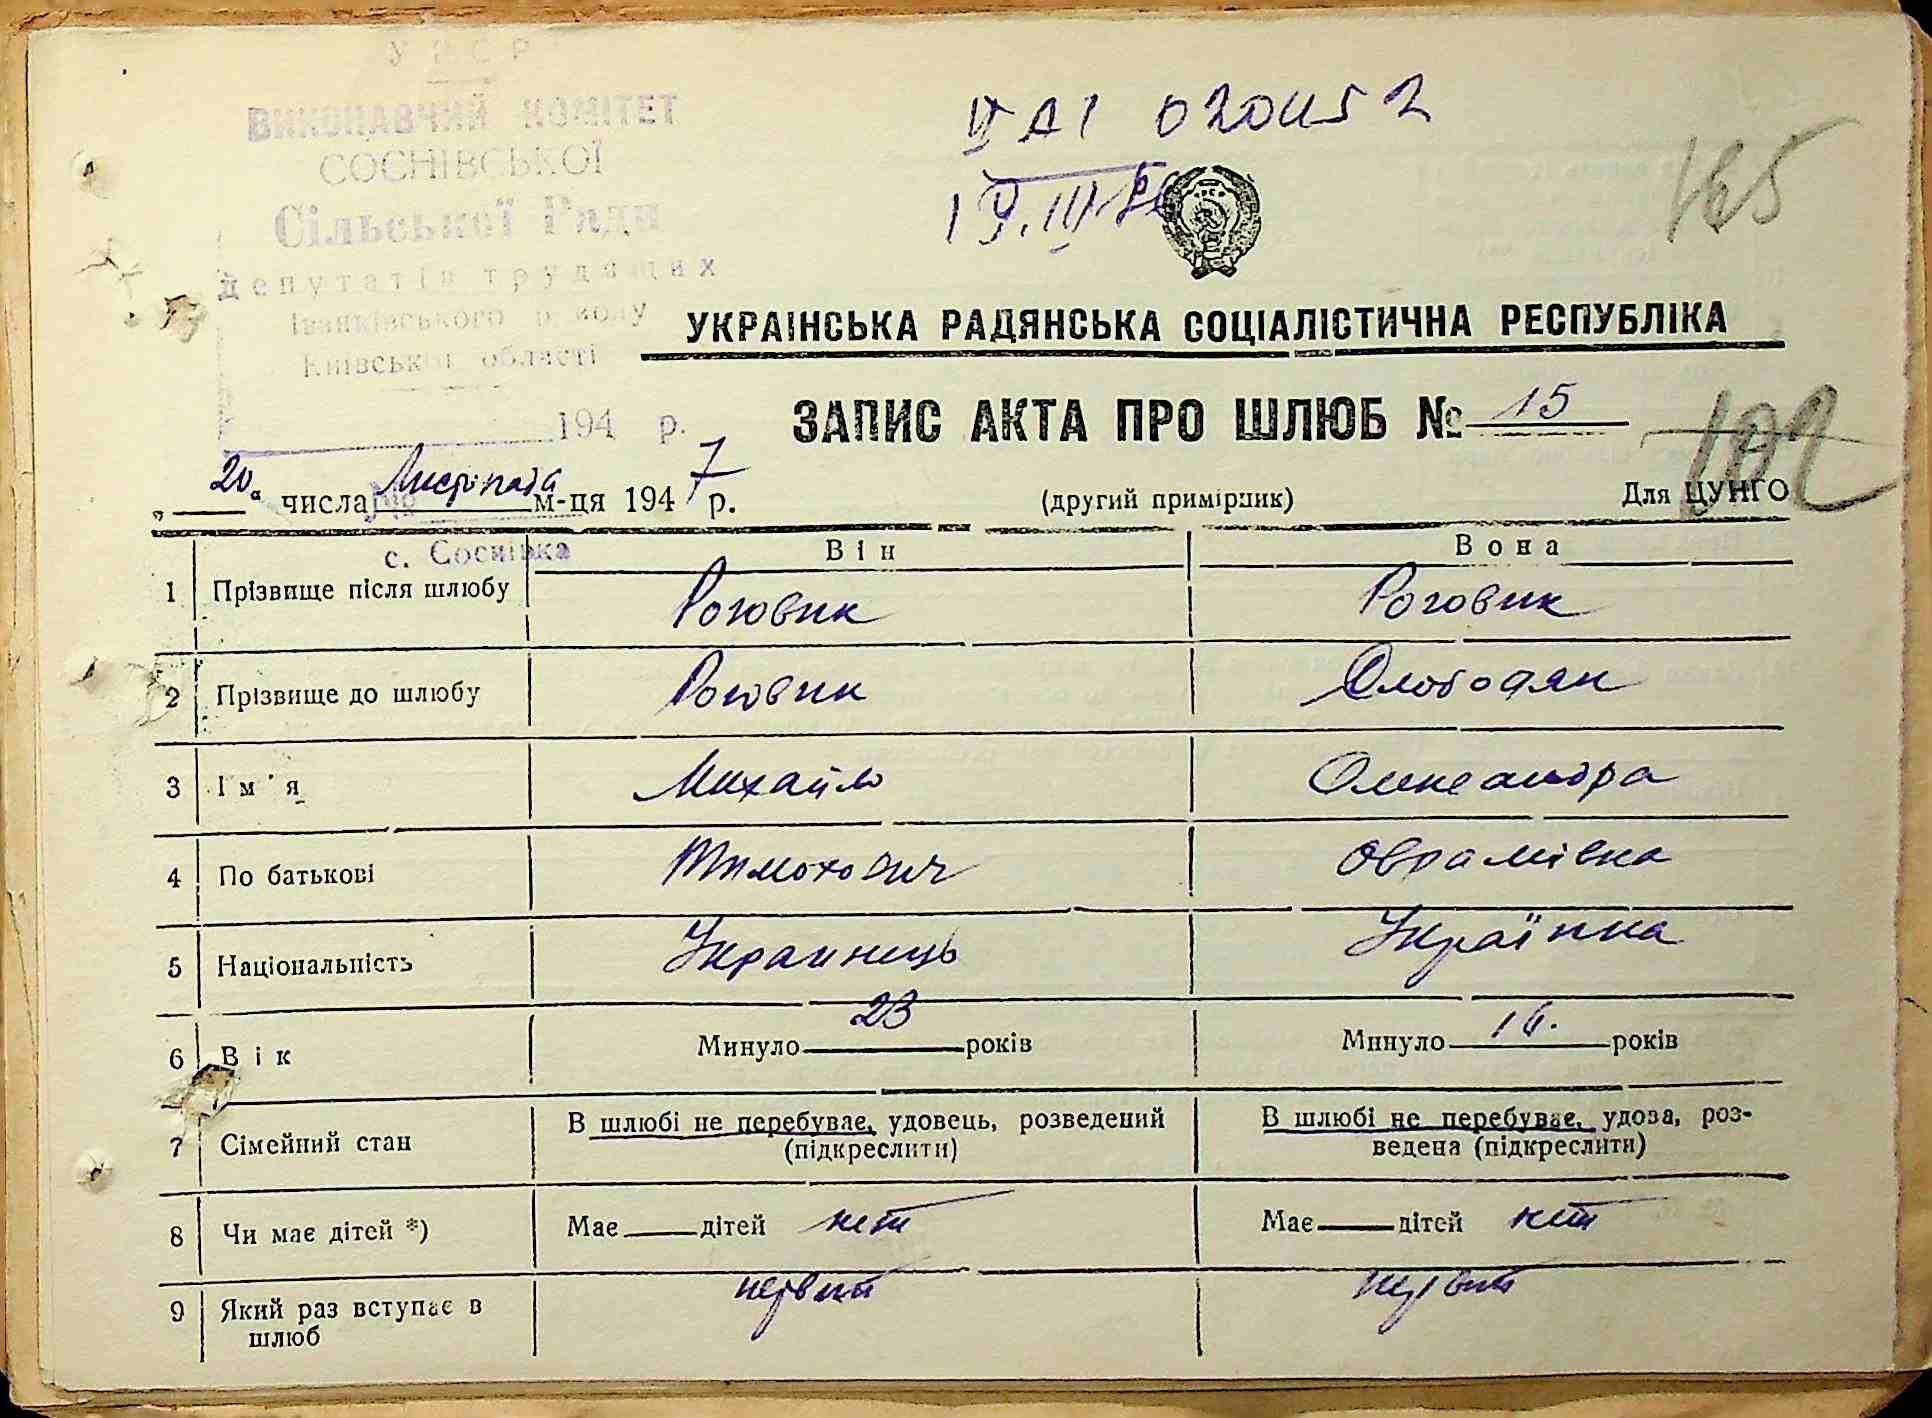 УРСР
ВИКОНАВЧИЙ КОМІТЕТ
СОСНІВСЬКОЇ
Сільської Ради
депутатів трудящих
Іванківського району
Київської області
194 р.
№
с. Соснівка
165
УКРАЇНСЬКА РАДЯНСЬКА СОЦІАЛІСТИЧНА РЕСПУБЛІКА
ЗАПИС АКТА ПРО ШЛЮБ № 15
102
„20“ числа Листопада м-ця 1947 р. (другий примірник) Для ЦУНГО
Він Вона
1 Прізвище після шлюбу Роговик Роговик
2 Прізвище до шлюбу Роговик Слободян
3 Ім'я Михайло Олександра
4 По батькові Тимохович Оврамівна
5 Національність Украинець Українка
6 Вік Минуло 23 років Минуло років
7 Сімейний стан В шлюбі не перебуває, удовець, розведений (підкреслити) В шлюбі не перебуває, удова, роз-
ведена (підкреслити)
8 Чи має дітей *) Має дітей нет Має дітей нет
9 Який раз вступає в первий первий
шлюб